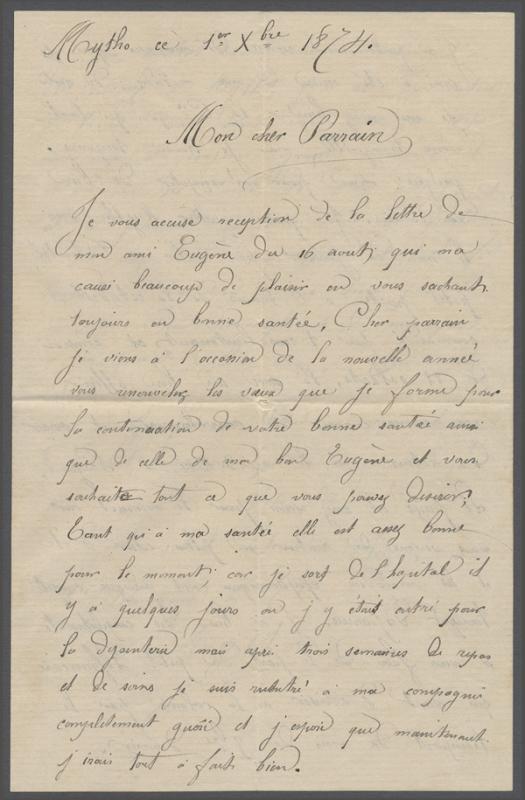 Mytho ce 1er Xbre 1874.
Mon cher Parrain
Je vous accuse reception de la lettre de
mon ami Eugène du 16 aout, qui ma
causé beaucoup de plaisir en vous sachant
toujours en bonne santée, Cher parrain
Je viens à l'occasion de la nouvelle année
vous renouveler les vœux que je forme pour
la continuation de votre bonne santée ainsi
que de celle de mon bon Eugène et vous
souhaite tout ce que vous pouvez désirer,
Tant qu'à ma santée elle est assez bonne
pour le moment, car je sort de l'hopital il
y à quelques jours ou j y étais entré pour
la dysenterie mais apri trois semaines de repos
et de soins je suis rentré à ma compagnie
complètement guéri et j'espère que maintenant
j'irais tout à fait bien.